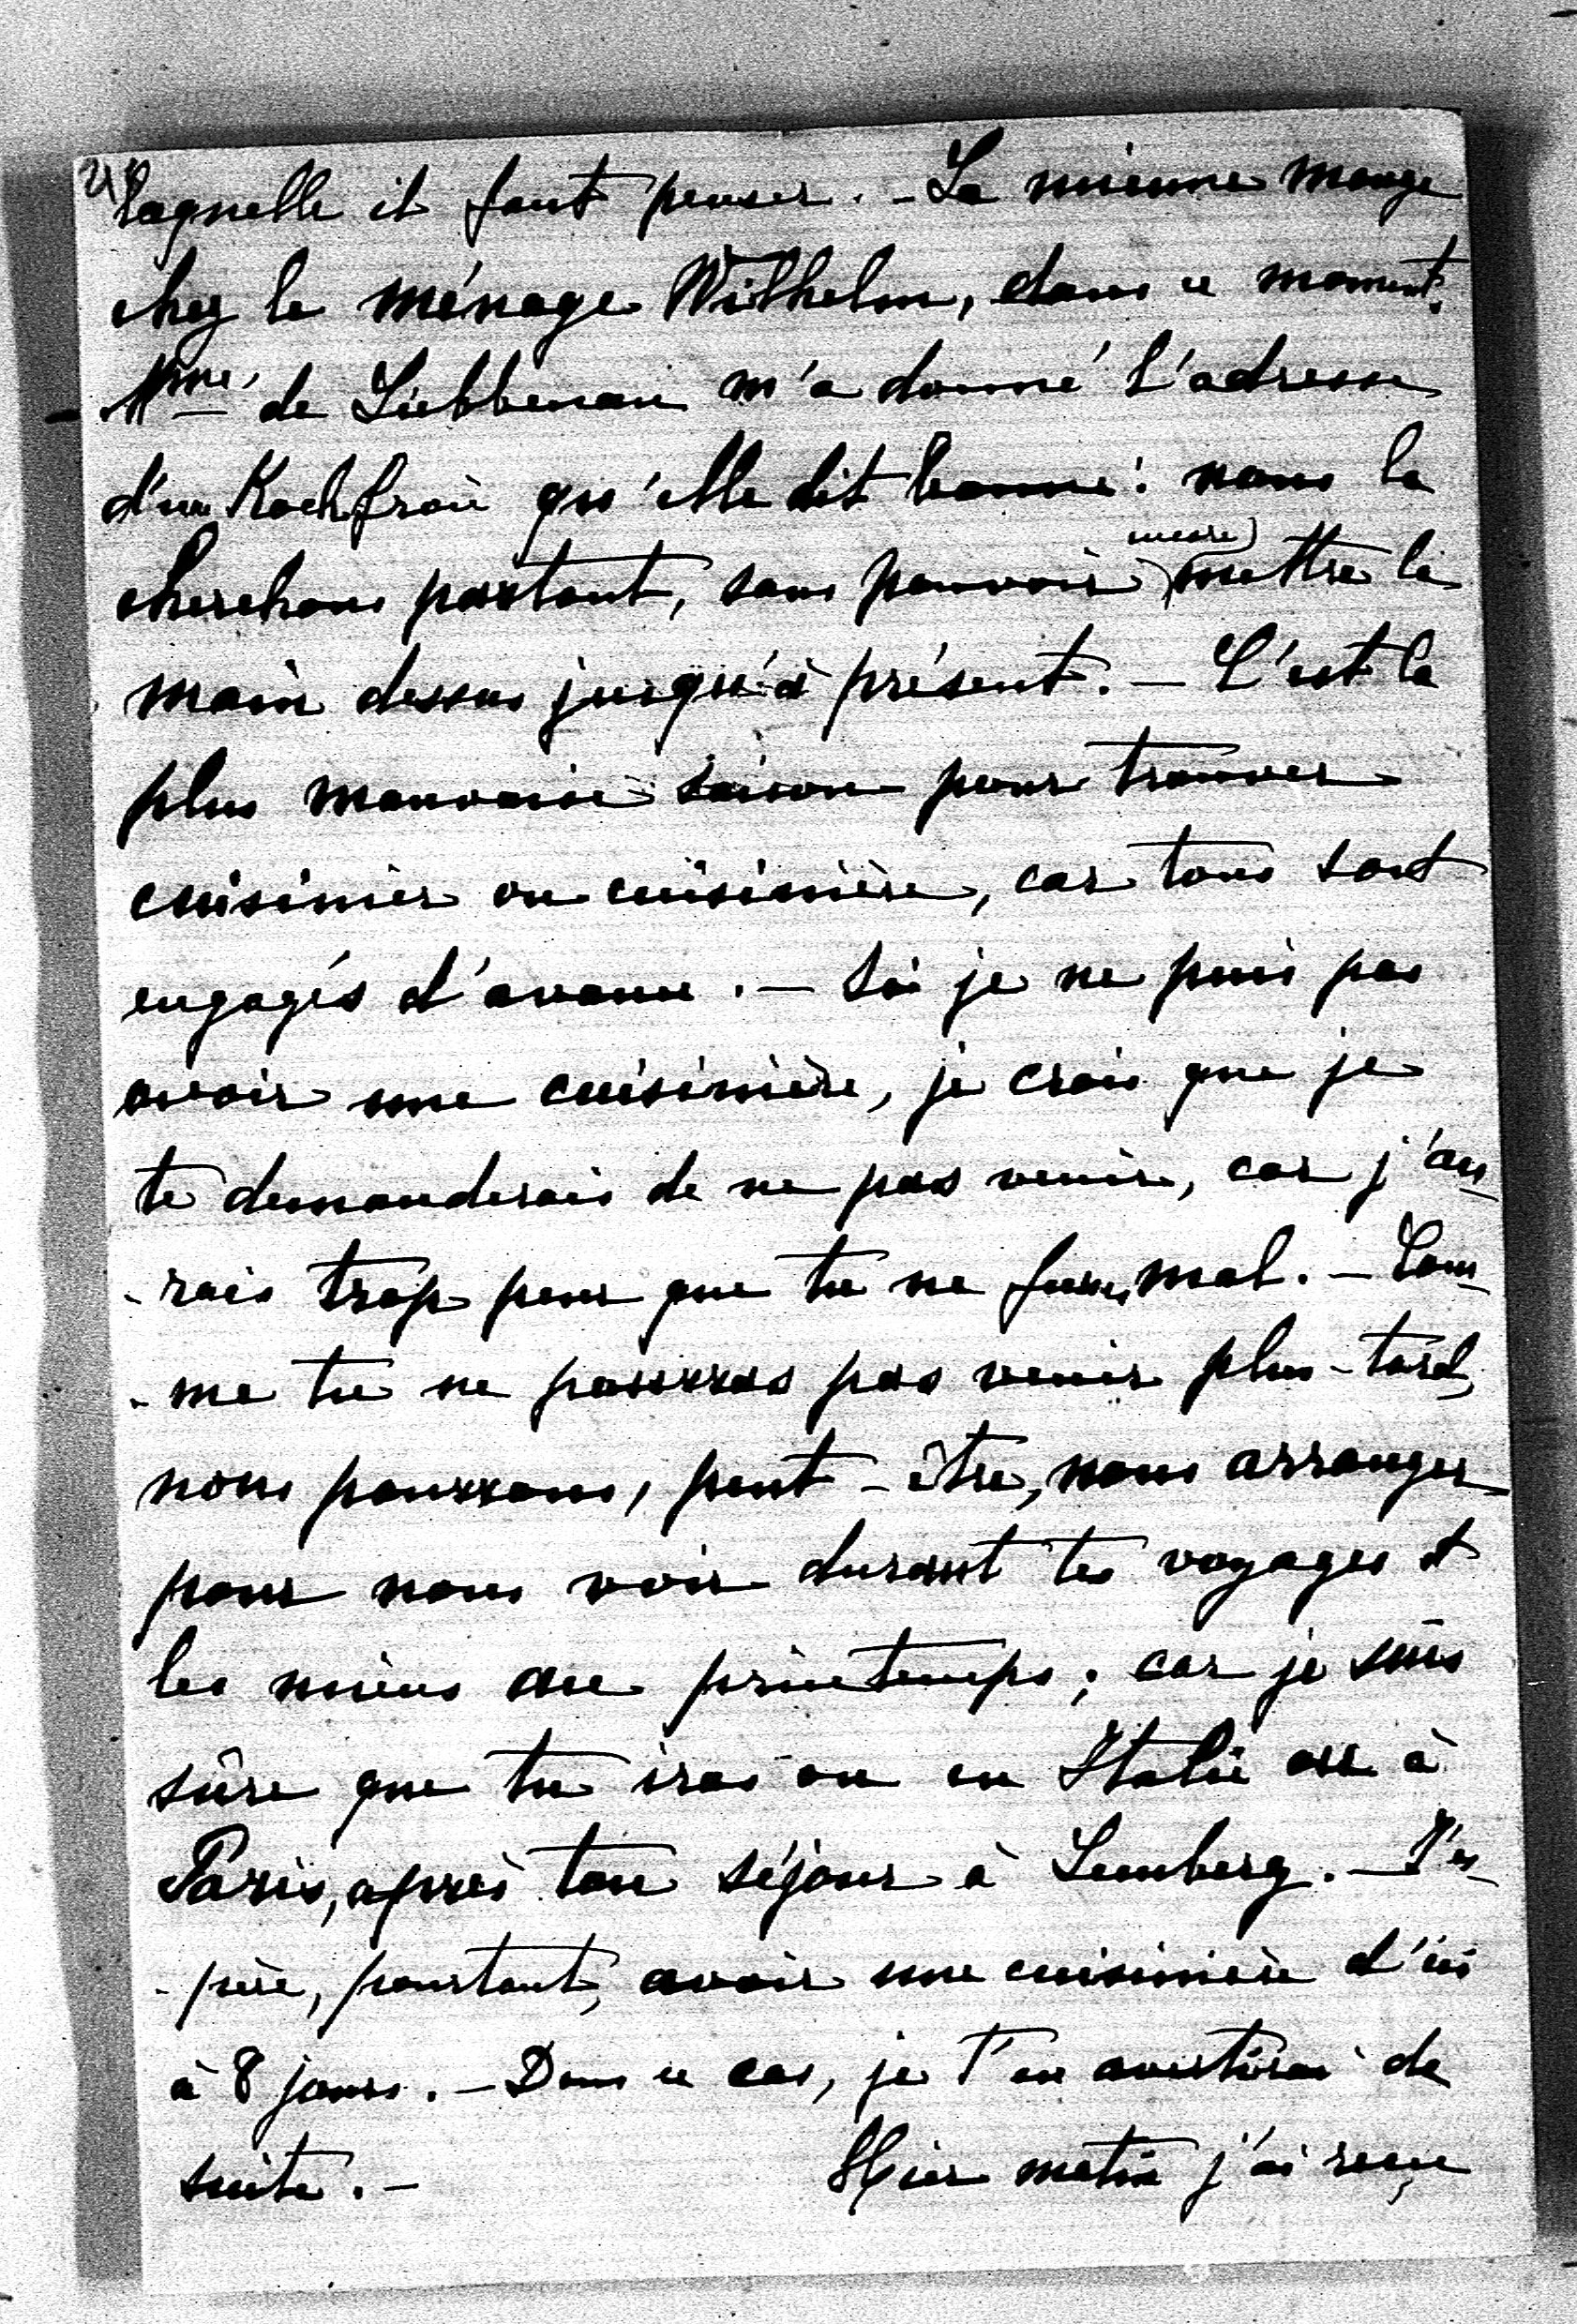 2/ laquelle il faut penser. – La mienne mange
chez le ménage Wilhelm, dans ce moment.
Mme. de Liebbenau m'a donné l'adresse
d'une Kochfrau qu'elle dit bonne: nous la
cherchons partout, sans pouvoir (encore) mettre la
main dessus jusqu'à présent. – C'est la
plus mauvaise saison pour trouver
cuisinier ou cuisinière, car tous sont
engagés d'avance. – Si je ne puis pas
avoir une cuisinière, je crois que je
te demanderais de ne pas venir, car j'au-
-rais trop peur que tu ne fusses mal. – Com-
-me tu ne pourras pas venir plus-tard,
nous pourrons, peut-être, nous arranger
pour nous voir durant tes voyages et
les miens au printemps; car je suis
sûre que tu iras ou en Italie ou à
Paris, après ton séjour à Lemberg. – J'es-
-père, pourtant, avoir une cuisinière d'ici
à 8 jours. – Dans ce cas, je t'en avertirai de
suite. – Hier matin j'ai reçu